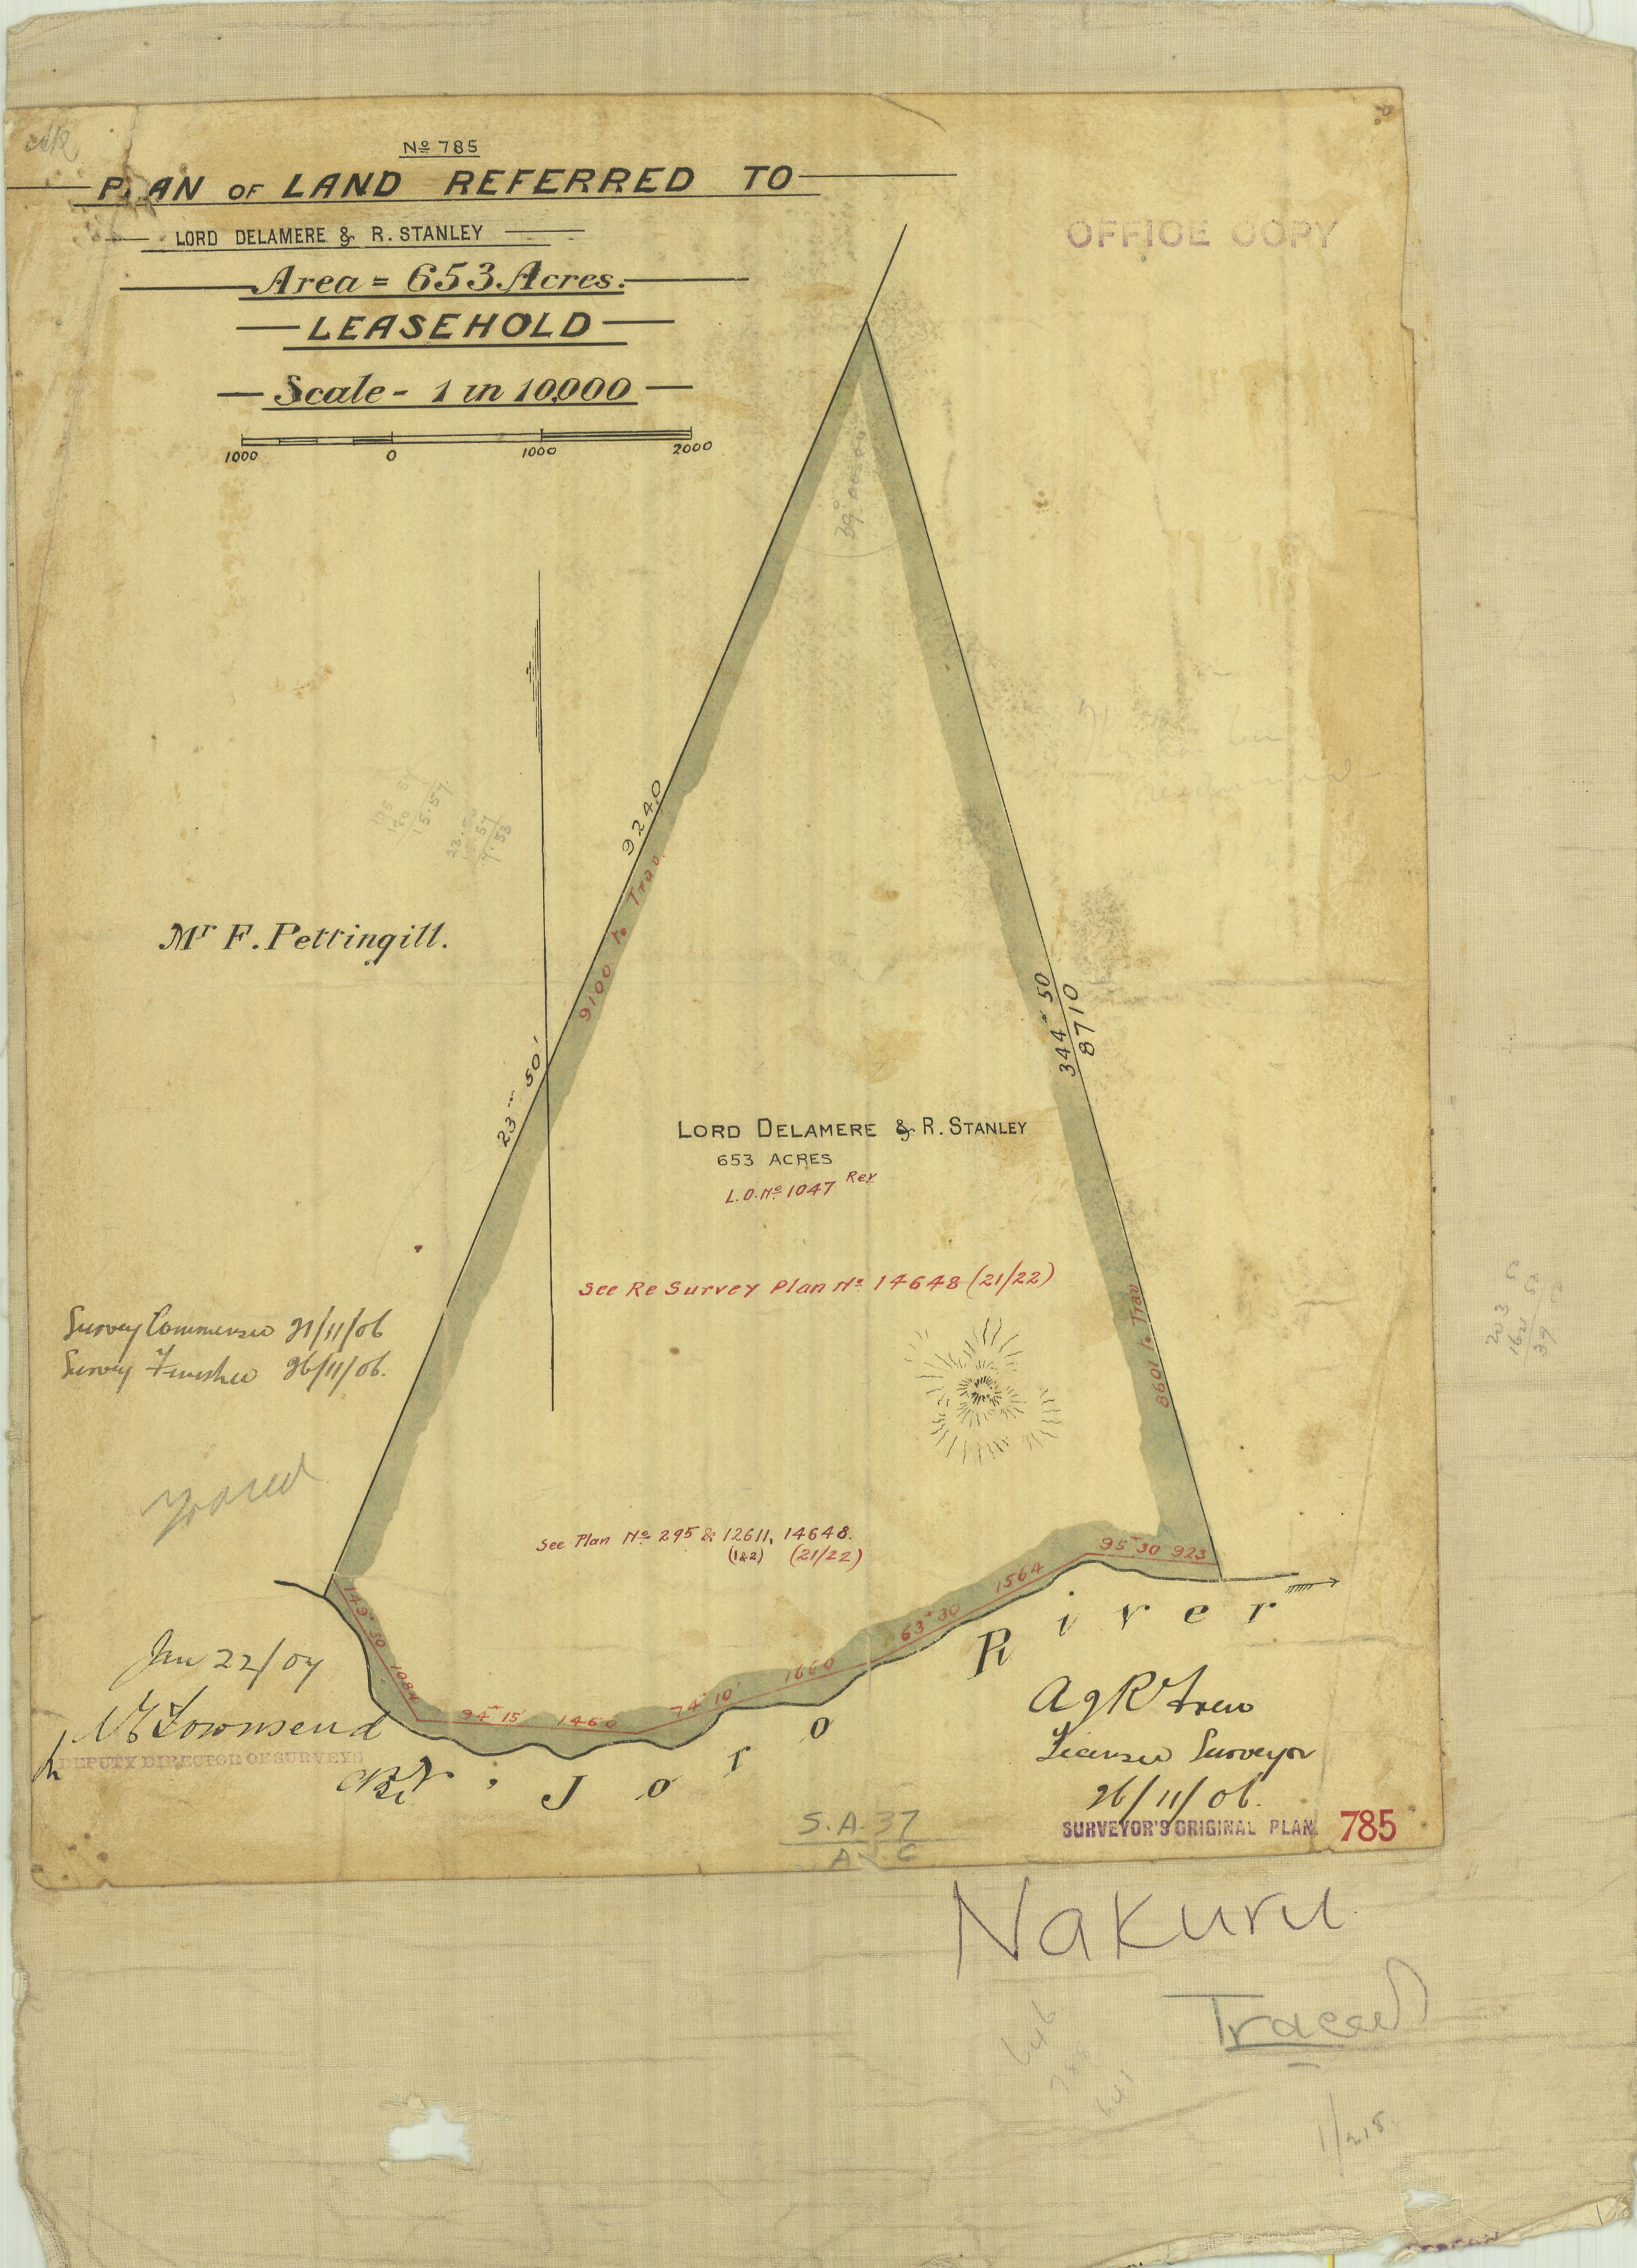 Nº 785
PLAN OF LAND REFERRED TO
LORD DELAMERE & R. STANLEY
Area = 653 Acres.
LEASEHOLD
Scale - 1 in 10,000
1000 0 1000 2000
OFFICE COPY
39° 00
9240
9100 to Trav.
Mr F. Pettingill.
23° 50'
344° 50
8710
LORD DELAMERE & R. STANLEY
653 ACRES
L.O. Nº 1047 Rex
See Re Survey Plan Nº 14648 (21/22)
8601 to Trav
Survey Commenced 21/11/06
Survey Finished 26/11/06.
See Plan Nº 295 & 12611, 14648.
(1&2) (21/22)
149° 30 1084
94° 15' 1460
74° 10' 1660
63° 30 1564
95° 30 923
River
Jan 22/07
Townsend
DEPUTY DIRECTOR OF SURVEYS
Joro
Licensed Surveyor
26/11/06.
SURVEYOR'S ORIGINAL PLAN. 785
S.A. 37
Nakuru
Traced
646